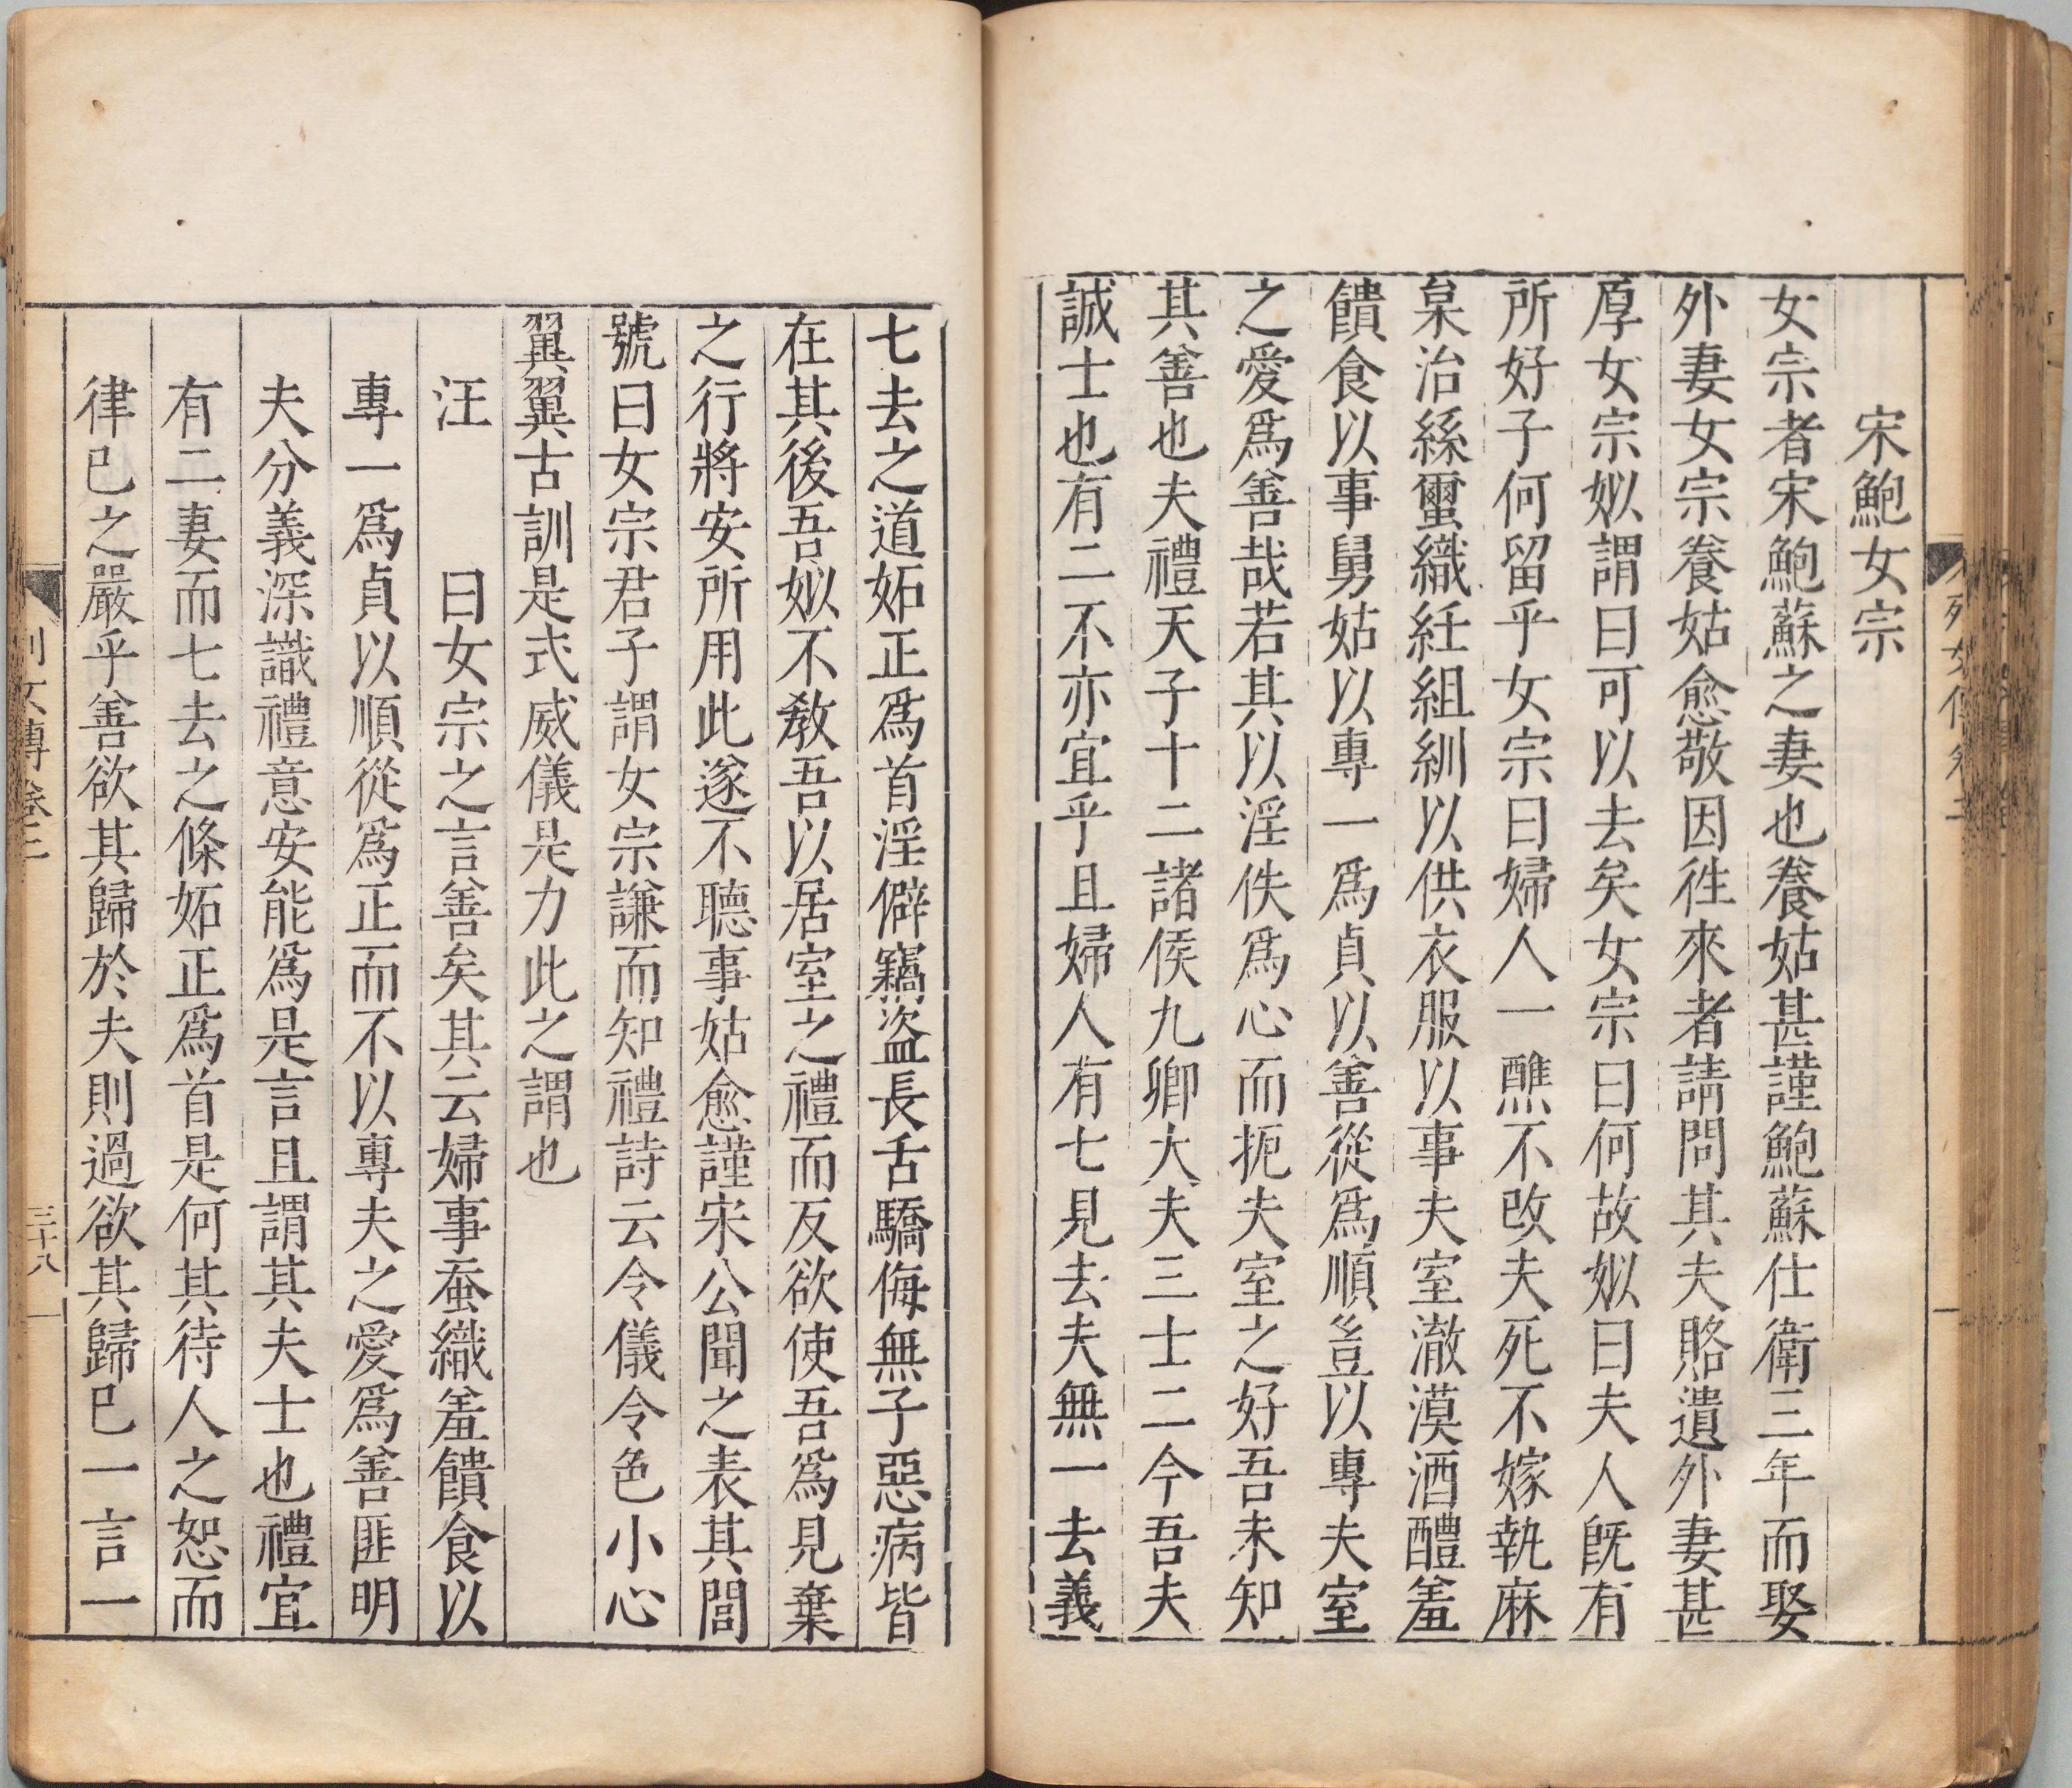 宋鮑女宗
女宗者宋鮑蘇之妻也養姑甚謹鮑蘇仕衛三年而娶
外妻女宗養姑愈敬因徃來者請問其夫賂遺外妻甚
厚女宗姒謂曰可以去矣女宗曰何故姒曰夫人旣有
所好子何留乎女宗曰婦人一醮不改夫死不嫁執麻
枲治絲蠒織紝組紃以供衣服以事夫室澈漠酒醴羞
饋食以事舅姑以專一爲貞以善從爲順豈以專夫室
之愛爲善哉若其以淫佚爲心而扼夫室之好吾未知
其善也夫禮天子十二諸侯九卿大夫三士二今吾夫
誠士也有二不亦宜乎且婦人有七見去夫無一去義
七去之道妬正爲首淫僻竊盜長舌驕侮無子惡病皆
在其後吾姒不教吾以居室之禮而反欲使吾爲見棄
之行將安所用此遂不聽事姑愈謹宋公聞之表其閭
號曰女宗君子謂女宗謙而知禮詩云令儀令色小心
翼翼古訓是式威儀是力此之謂也
汪 曰女宗之言善矣其云婦事蚕織羞饋食以
專一爲貞以順從爲正而不以專夫之愛爲善匪明
夫分義深識禮意安能爲是言且謂其夫士也禮宜
有二妻而七去之條妬正爲首是何其待人之恕而
律已之嚴乎善欲其歸於夫則過欲其歸已一言一
列女傳卷二
三十八